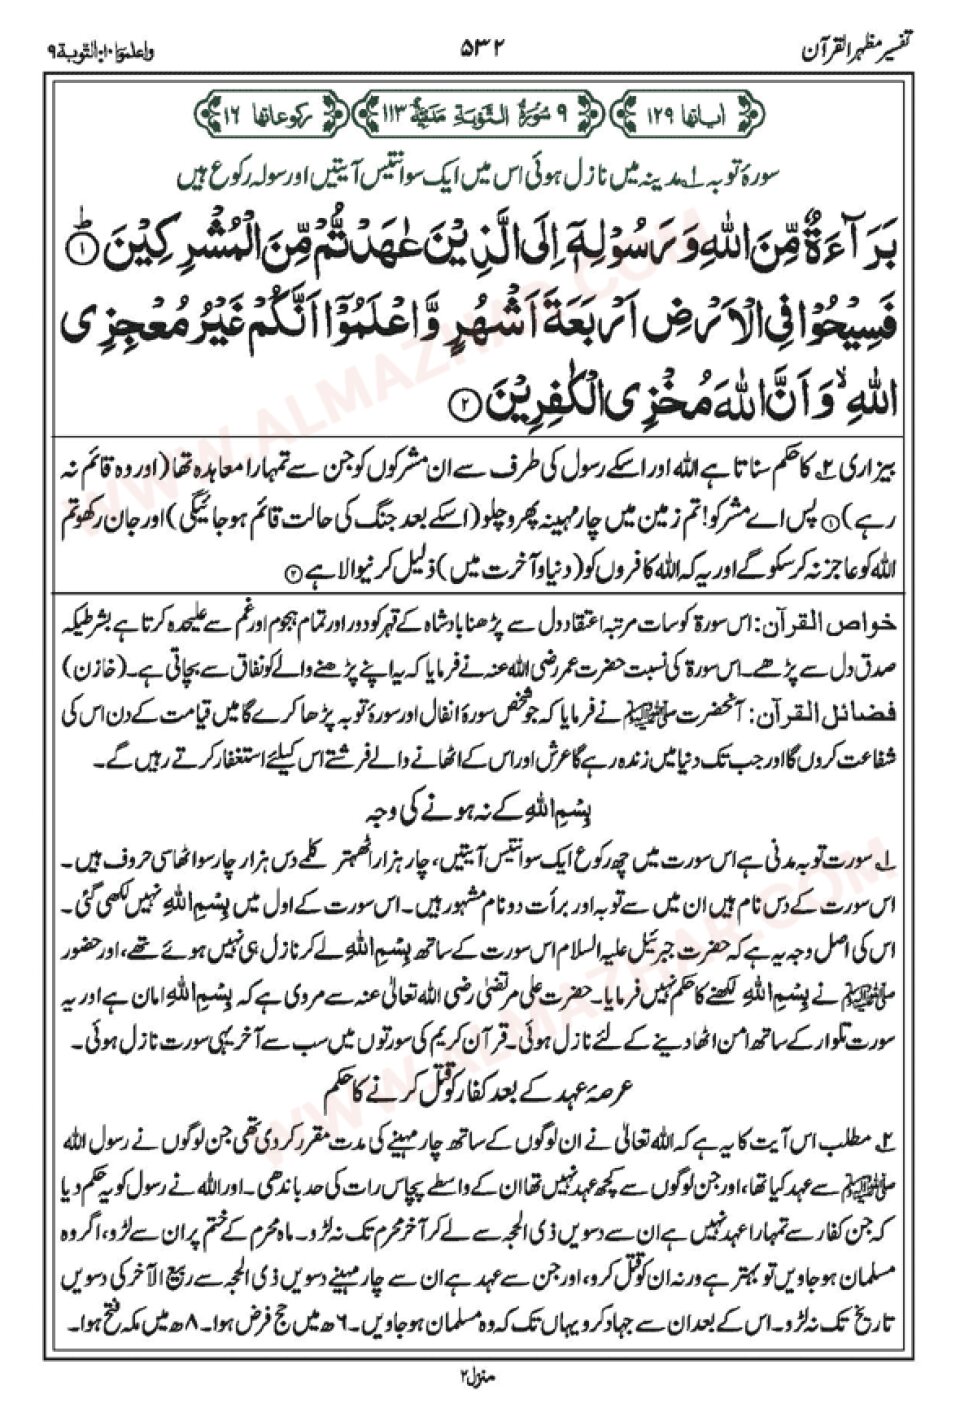 تفسیر مظہر القرآن
۵۳۲
واعلموا ۱۰: التوبة ۹
اٰیاتھا ۱۲۹
۹ سُوْرَةُ التَّوْبَةِ مَدَنِيَّةٌ ۱۱۳
رکوعاتھا ۱۶
سورۂ توبہ ۱؎ مدینہ میں نازل ہوئی اس میں ایک سو انتیس آیتیں اور سولہ رکوع ہیں
بَرَآءَةٌ مِّنَ اللّٰهِ وَرَسُوْلِهٖۤ اِلَى الَّذِيْنَ عٰهَدْتُّمْ مِّنَ الْمُشْرِكِيْنَ ؕ۱
فَسِيْحُوْا فِى الْاَرْضِ اَرْبَعَةَ اَشْهُرٍ وَّاعْلَمُوْۤا اَنَّكُمْ غَيْرُ مُعْجِزِى
اللّٰهِ ۙ وَاَنَّ اللّٰهَ مُخْزِى الْكٰفِرِيْنَ ۲
بیزاری ۲؎ کا حکم سناتا ہے اللہ اور اسکے رسول کی طرف سے ان مشرکوں کو جن سے تمہارا معاہدہ تھا (اور وہ قائم نہ
رہے) ۱ پس اے مشرکو! تم زمین میں چار مہینہ پھر و چلو (اسکے بعد جنگ کی حالت قائم ہوجائیگی) اور جان رکھو تم
اللہ کو عاجز نہ کرسکو گے اور یہ کہ اللہ کافروں کو (دنیا و آخرت میں) ذلیل کرنیوالا ہے ۲
خواص القرآن: اس سورۃ کو سات مرتبہ اعتقاد دل سے پڑھنا بادشاہ کے قہر کو دور اور تمام ہجوم اور غم سے علیحدہ کرتا ہے بشرطیکہ
صدق دل سے پڑھے۔ اس سورۃ کی نسبت حضرت عمر رضی اللہ عنہ نے فرمایا کہ یہ اپنے پڑھنے والے کو نفاق سے بچاتی ہے۔ (خازن)
فضائل القرآن: آنحضرت ﷺ نے فرمایا کہ جو شخص سورۂ انفال اور سورۂ توبہ پڑھا کرے گا میں قیامت کے دن اس کی
شفاعت کروں گا اور جب تک دنیا میں زندہ رہے گا عرش اور اس کے اٹھانے والے فرشتے اس کیلئے استغفار کرتے رہیں گے۔
بِسْمِ اللّٰهِ کے نہ ہونے کی وجہ
۱؎ سورت توبہ مدنی ہے اس سورت میں چھ رکوع ایک سو انتیس آیتیں، چار ہزار اٹھہتر کلمے دس ہزار چار سو اٹھاسی حروف ہیں۔
اس سورت کے دس نام ہیں ان میں سے توبہ اور برأت دو نام مشہور ہیں۔ اس سورت کے اول میں بِسْمِ اللّٰهِ نہیں لکھی گئی۔
اس کی اصل وجہ یہ ہے کہ حضرت جبرئیل علیہ السلام اس سورت کے ساتھ بِسْمِ اللّٰهِ لے کر نازل ہی نہیں ہوئے تھے، اور حضور
ﷺ نے بِسْمِ اللّٰهِ لکھنے کا حکم نہیں فرمایا۔ حضرت علی مرتضیٰ رضی اللہ تعالیٰ عنہ سے مروی ہے کہ بِسْمِ اللّٰهِ امان ہے اور یہ
سورت تلوار کے ساتھ امن اٹھا دینے کے لئے نازل ہوئی۔ قرآن کریم کی سورتوں میں سب سے آخر یہی سورت نازل ہوئی۔
عرصۂ عہد کے بعد کفار کو قتل کرنے کا حکم
۲؎ مطلب اس آیت کا یہ ہے کہ اللہ تعالیٰ نے ان لوگوں کے ساتھ چار مہینے کی مدت مقرر کردی تھی جن لوگوں نے رسول اللہ
ﷺ سے عہد کیا تھا، اور جن لوگوں سے کچھ عہد نہیں تھا ان کے واسطے پچاس رات کی حد باندھی۔ اور اللہ نے رسول کو یہ حکم دیا
کہ جن کفار سے تمہارا عہد نہیں ہے ان سے دسویں ذی الحجہ سے لے کر آخر محرم تک نہ لڑو۔ ماہ محرم کے ختم پر ان سے لڑو، اگر وہ
مسلمان ہوجاویں تو بہتر ہے ورنہ ان کو قتل کرو، اور جن سے عہد ہے ان سے چار مہینے دسویں ذی الحجہ سے ربیع الآخر کی دسویں
تاریخ تک نہ لڑو۔ اس کے بعد ان سے جہاد کرو یہاں تک کہ وہ مسلمان ہوجاویں۔ ۶ھ میں حج فرض ہوا۔ ۸ھ میں مکہ فتح ہوا۔
منزل ۲
WWW.ALMAZHAR.COM
WWW.ALMAZHAR.COM